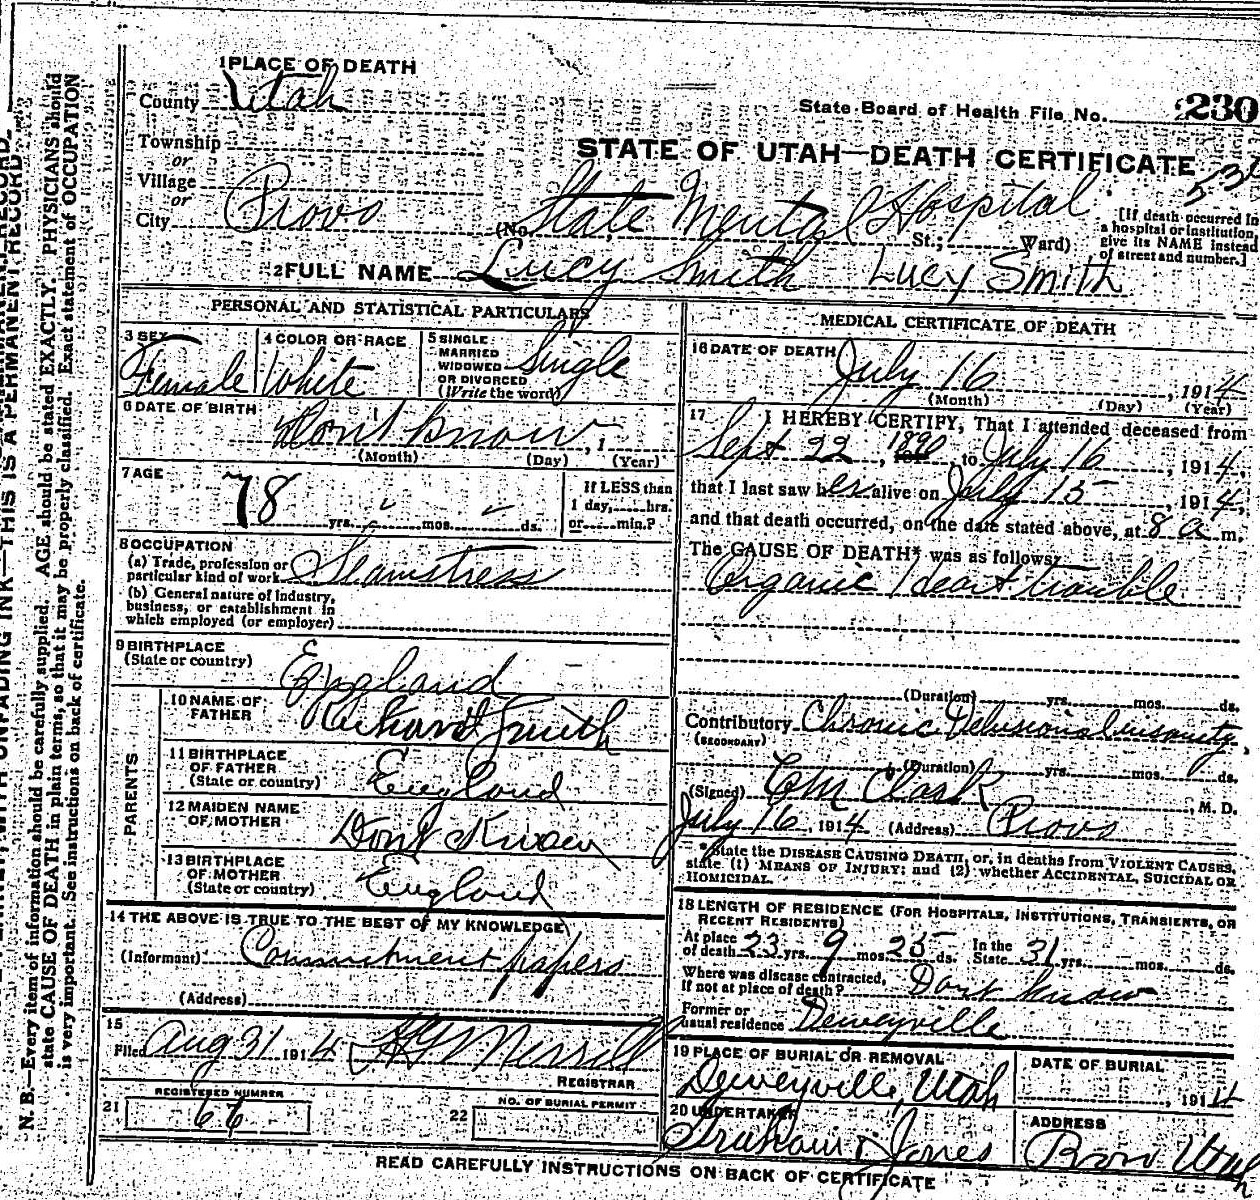 1 PLACE OF DEATH
County Utah
State Board of Health File No. 230
Township
or
Village
or
City Provo
STATE OF UTAH—DEATH CERTIFICATE
(No. State Mental Hospital St.; Ward)
[If death occurred in a hospital or institution, give its NAME instead of street and number.]
2 FULL NAME Lucy Smith Lucy Smith
PERSONAL AND STATISTICAL PARTICULARS
3 SEX Female
4 COLOR OR RACE White
5 SINGLE MARRIED WIDOWED OR DIVORCED (Write the word) Single
6 DATE OF BIRTH Dont know, 1
(Month) (Day) (Year)
7 AGE 78 yrs. mos. ds.
If LESS than 1 day, hrs. or min.?
8 OCCUPATION
(a) Trade, profession or particular kind of work Seamstress
(b) General nature of industry, business, or establishment in which employed (or employer)
9 BIRTHPLACE (State or country) England
PARENTS
10 NAME OF FATHER Richard Smith
11 BIRTHPLACE OF FATHER (State or country) England
12 MAIDEN NAME OF MOTHER Dont Know
13 BIRTHPLACE OF MOTHER (State or country) England
14 THE ABOVE IS TRUE TO THE BEST OF MY KNOWLEDGE
(Informant) Commitment papers
(Address)
15
Filed Aug 31 1914 Merrill
REGISTRAR
REGISTERED NUMBER
21 66
NO. OF BURIAL PERMIT
22
MEDICAL CERTIFICATE OF DEATH
16 DATE OF DEATH July 16, 1914
(Month) (Day) (Year)
17 I HEREBY CERTIFY, That I attended deceased from
Sept 22, 1890, to July 16, 1914,
that I last saw her alive on July 15, 1914,
and that death occurred, on the date stated above, at 8 a m.
The CAUSE OF DEATH* was as follows:
Organic Heart trouble
(Duration) yrs. mos. ds.
Contributory Chronic Delusional insanity,
(SECONDARY)
(Duration) yrs. mos. ds.
(Signed) C M Clark, M. D.
July 16, 1914 (Address) Provo
*State the DISEASE CAUSING DEATH, or, in deaths from VIOLENT CAUSES,
state (1) MEANS OF INJURY; and (2) whether ACCIDENTAL, SUICIDAL OR
HOMICIDAL.
18 LENGTH OF RESIDENCE (FOR HOSPITALS, INSTITUTIONS, TRANSIENTS, OR
RECENT RESIDENTS)
At place of death 23 yrs. 9 mos. 25 ds. In the State 31 yrs. mos. ds.
Where was disease contracted, if not at place of death? Dont know
Former or usual residence Deweyville
19 PLACE OF BURIAL OR REMOVAL Deweyville, Utah
DATE OF BURIAL, 1914
20 UNDERTAKER Graham & Jones
ADDRESS Provo Utah
READ CAREFULLY INSTRUCTIONS ON BACK OF CERTIFICATE
WITH UNFADING INK—THIS IS A PERMANENT RECORD
N. B.—Every item of information should be carefully supplied. AGE should be stated EXACTLY. PHYSICIANS should
state CAUSE OF DEATH in plain terms, so that it may be properly classified. Exact statement of OCCUPATION
is very important. See instructions on back of certificate.